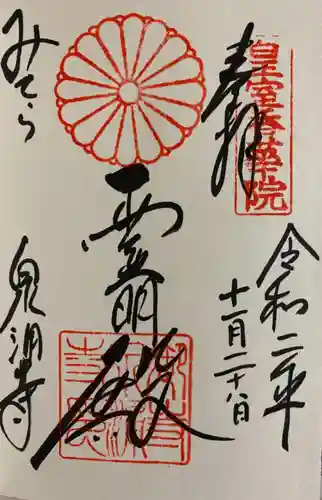 皇室香華院
奉拝
令和二年
十一月二十八日
霊明殿
みてら
泉涌寺